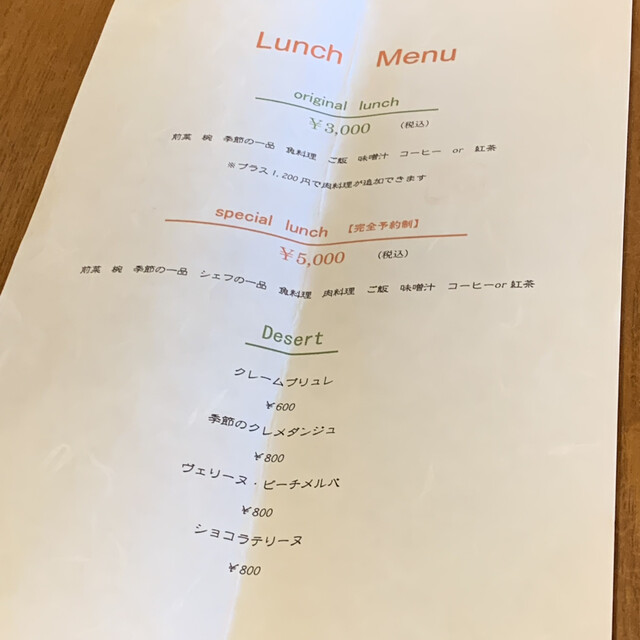 Lunch Menu
original lunch
￥3,000 （税込）
前菜 椀 季節の一品 魚料理 ご飯 味噌汁 コーヒー or 紅茶
※プラス1,200円で肉料理が追加できます
special lunch 【完全予約制】
￥5,000 （税込）
前菜 椀 季節の一品 シェフの一品 魚料理 肉料理 ご飯 味噌汁 コーヒーor 紅茶
Desert
クレームブリュレ
￥600
季節のクレメダンジュ
￥800
ヴェリーヌ・ピーチメルバ
￥800
ショコラテリーヌ
￥800